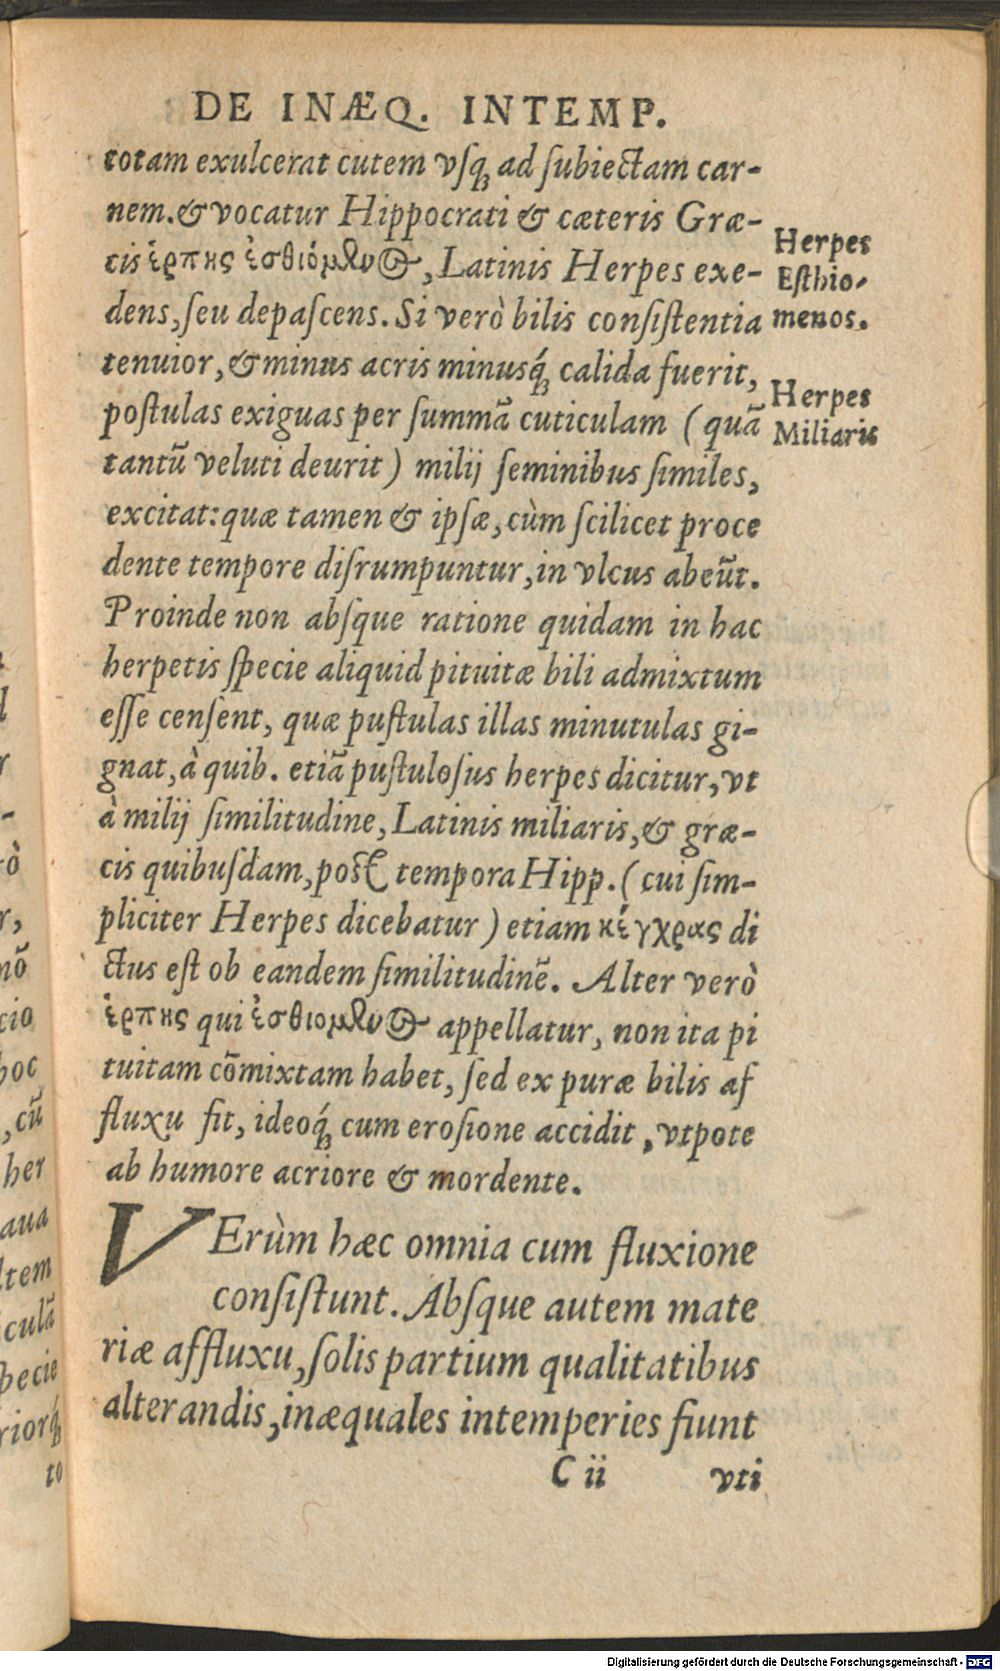 DE INÆQ. INTEMP.
totam exulcerat cutem vſqꝫ ad ſubiectam car-
nem. & vocatur Hippocrati & cæteris Græ-
cis ἑρπης ἐσθιόμενος, Latinis Herpes exe-
dens, ſeu depaſcens. Si verò bilis conſiſtentia
tenuior, & minus acris minusq́ꝫ calida fuerit,
poſtulas exiguas per ſummā cuticulam (quā
tantū veluti deurit) milij ſeminibus ſimiles,
excitat: quæ tamen & ipſæ, cùm ſcilicet proce
dente tempore diſrumpuntur, in vlcus abeūt.
Proinde non abſque ratione quidam in hac
herpetis ſpecie aliquid pituitæ bili admixtum
eſſe cenſent, quæ puſtulas illas minutulas gi-
gnat, à quib. etiā puſtuloſus herpes dicitur, vt
à milij ſimilitudine, Latinis miliaris, & græ-
cis quibuſdam, poſt tempora Hipp. (cui ſim-
pliciter Herpes dicebatur) etiam κέγχρας di
ctus eſt ob eandem ſimilitudinē. Alter verò
ἑρπης qui ἐσθιομενος appellatur, non ita pi
tuitam cōmixtam habet, ſed ex puræ bilis af
fluxu fit, ideoq́ꝫ cum eroſione accidit, vtpote
ab humore acriore & mordente.
VErùm hæc omnia cum fluxione
conſiſtunt. Abſque autem mate
riæ affluxu, ſolis partium qualitatibus
alterandis, inæquales intemperies fiunt
C ii vti
Herpes
Eſthio-
menos.
Herpes
Miliaris
rò
r,
nō
cio
hoc
, cū
her
aua
ltem
culā
ſpecie
riorq́ꝫ
to
Digitalisierung gefördert durch die Deutsche Forschungsgemeinschaft - DFG